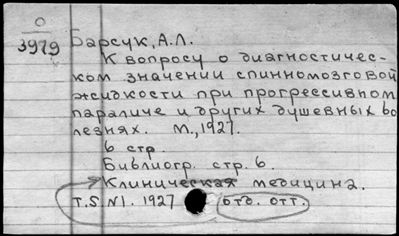 О
3979
Барсук, А.Л.
К вопросу о диагностичес-
ком значении спинномозговой
жидкости при прогрессивном
параличе и других душевных бо
лезнях. М., 1927.
6 стр.
Библиогр. стр. 6.
Клиническая медицина.
т.5 №1. 1927 отд. отт.